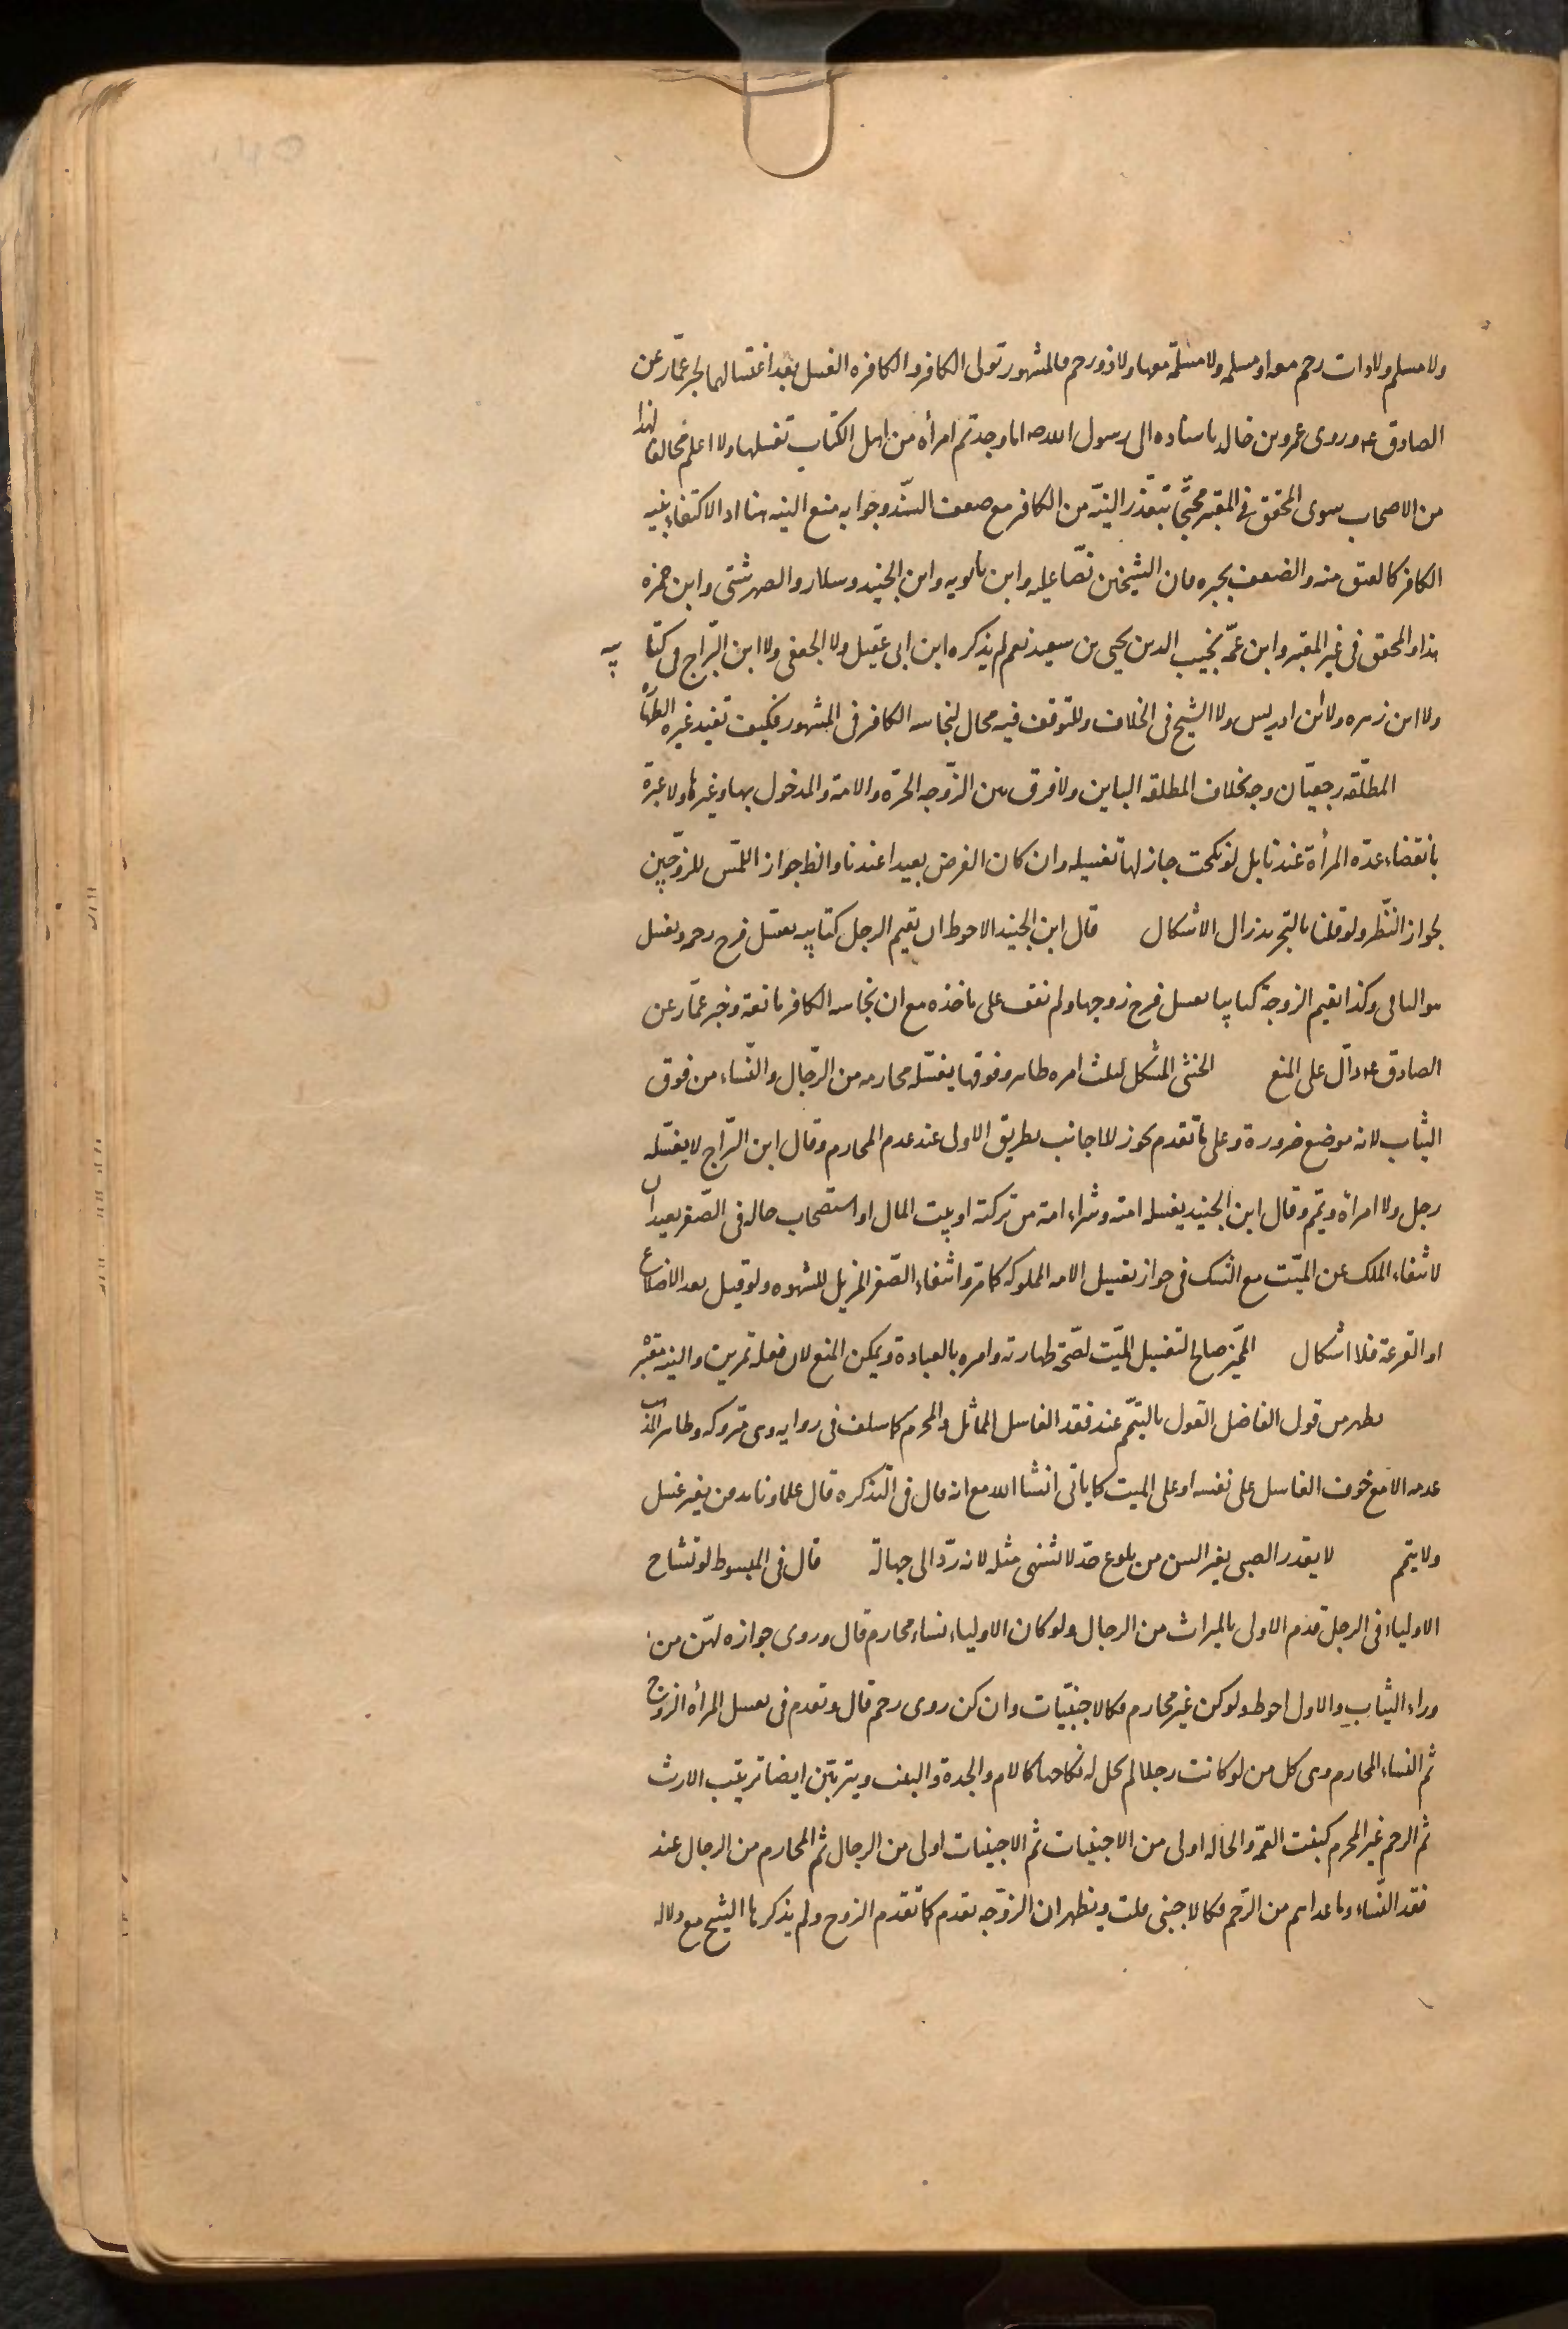 ولا مسلم ولا ذات رحم معه او مسلمه ولا مسلمة معها ولا ذو رحم فالمشهور تولى الكافر والكافره الغسل بعد اغتسالهما لخبر عمّار عن
الصادق ع وروى عمرو بن خالد باسناده الى رسول الله ص اما وجدتم امرأه من اهل الكتاب تغسلها ولا اعلم مخالفا لهذا
من الاصحاب سوى المحقق فى المعتبر محتجّا بتعذّر النيّه من الكافر مع ضعف السّند وجوابه منع النيه هنا او الاكتفاء بنيه
الكافر كالعتق منه والضعف يجبره فان الشيخين نصّا عليه وابن بابويه وابن الجنيد وسلار والصهرشتى وابن حمزه
هذا والمحقق فى غير المعتبر وابن عمّه نجيب الدين يحيى بن سعيد نعم لم يذكره ابن ابى عقيل ولا الجعفى ولا ابن البرّاج فى كتابيه
ولا ابن زهره ولا ابن ادريس ولا الشيخ فى الخلاف وللتوقف فيه مجال لنجاسه الكافر فى المشهور فكيف تفيد غيره الطهاره
المطلّقه رجعيّا زوجه بخلاف المطلقه الباين ولا فرق بين الزّوجه الحرّه والامة والمدخول بها وغيرها ولا عبرة
بانقضاء عدّه المرأة عندنا بل لو نكحت جاز لها تغسيله وان كان الفرض بعيدا عندنا والظ جواز اللمس للزوّجين
لجواز النّظر ولو قلنا بالتجريد زال الاشكال قال ابن الجنيد الاحوط ان يقيم الرجل كتابيه تغسل فرج رحمه ويغسل
هو الباقى وكذا تقيم الزوجة كتابيا يغسل فرج زوجها ولم نقف على ماخذه مع ان نجاسه الكافر مانعة وخبر عمّار عن
الصادق ع دالّ على المنع الخنثى المشكل لثلث امره ظاهر وفوقها يغسّله محارمه من الرّجال والنّساء من فوق
الثياب لانه موضع ضرورة وعلى ما تقدم يجوز للاجانب بطريق الاولى عند عدم المحارم وقال ابن البرّاج لا يغسّله
رجل ولا امراة ويتمم وقال ابن الجنيد يغسله امته وشراء امة من تركته او بيت المال او استصحاب حاله فى الصّغر بعيدان
لانتفاء الملك عن الميّت مع الشك فى جواز تغسيل الامه المملوكه كما مرّ وانتفاء الصّغر المزيل للشهوه ولو قيل بعد الاضلاع
او القرعة فلا اشكال المميّز صالح لتغسيل الميّت لصّحة طهارته وامره بالعبادة ويمكن المنع لان فعله تمرين والنيه معتبره
يظهر من قول الفاضل القول بالتيمّم عند فقد الغاسل المماثل والمحرم كما سلف فى روايه وهى متروكه وظاهر المذهب
عدمه الا مع خوف الغاسل على نفسه او على الميت كما ياتى انشا الله مع انه قال فى التذكره قال علماؤنا يدفن بغير غسل
ولا يتمم لا يقدر الصبى بغير السن من بلوغ حدّ لا تشتهى مثله لانه ردّ الى جهالة قال فى المبسوط لو تشاح
الاولياء فى الرجل قدم الاولى بالميراث من الرجال ولو كان الاولياء نساء محارم قال وروى جوازه لهّن من
وراء الثيّاب والاول احوط ولو كن غير محارم فكالاجنبيّات وان كن ذوى رحم قال وتقدم فى غسل المرأه الزوج
ثم النساء المحارم وهى كل من لو كانت رجلا لم يحل له نكاحها كالام والجدة والبنت ويترتّبن ايضا ترتيب الارث
ثم الرحم غير المحرم كبنت العمّه والخاله اولى من الاجنبيات ثم الاجنبيات اولى من الرجال ثم المحارم من الرجال عند
فقد النّساء وما عداهم من الرّحم فكالاجنبى قلت ويظهر ان الزوّجه تقدم كما تقدم الزوج ولم يذكرها الشيخ مع دلاله